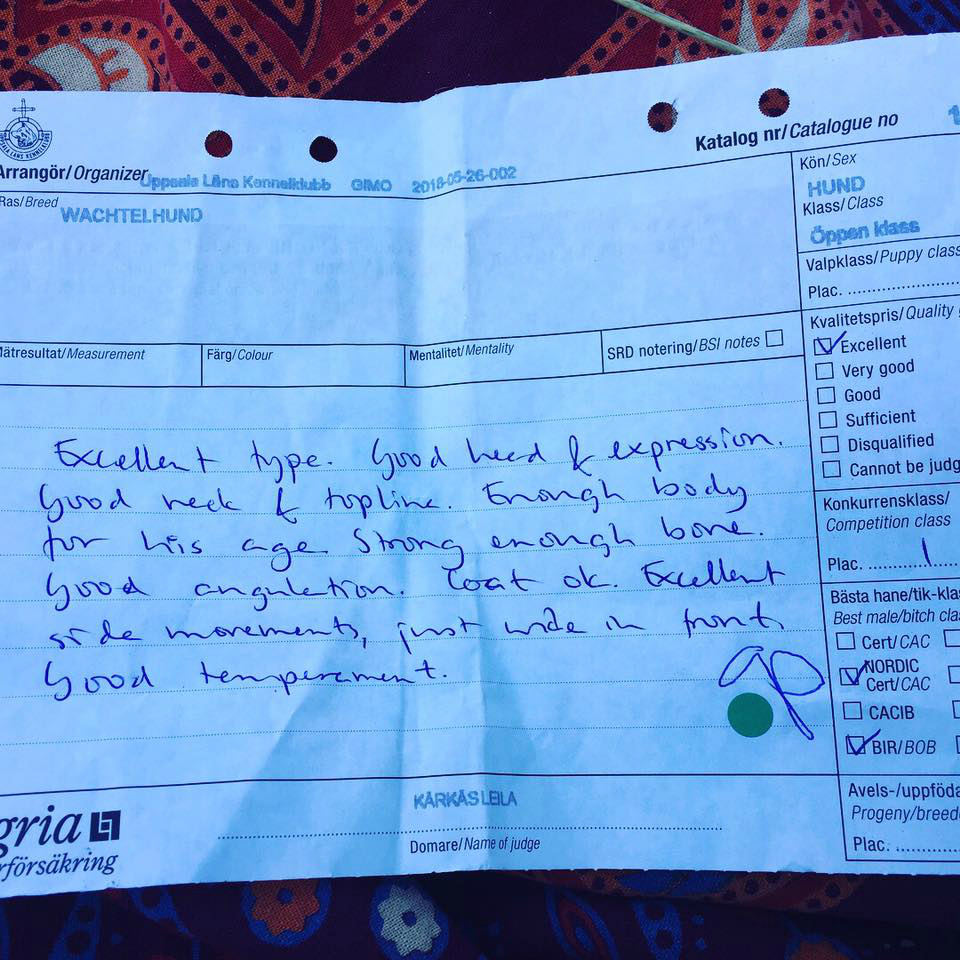 UPPSALA LÄNS KENNELKLUBB
Katalog nr/Catalogue no
Arrangör/Organizer Uppsala Läns Kennelklubb GIMO 2018-05-26-002
Ras/Breed WACHTELHUND
Kön/Sex
HUND
Klass/Class
Öppen klass
Valpklass/Puppy class
Plac.
Mätresultat/Measurement
Färg/Colour
Mentalitet/Mentality
SRD notering/BSI notes
Kvalitetspris/Quality
Excellent
Very good
Good
Sufficient
Disqualified
Cannot be judg
Excellent type. Good head & expression.
Good neck & topline. Enough body
for his age. Strong enough bone.
Good angulation. Coat ok. Excellent
side movements, just wide in front.
Good temperament.
Konkurrensklass/
Competition class
Plac. 1
Bästa hane/tik-kla
Best male/bitch cla
Cert/CAC
NORDIC
Cert/CAC
CACIB
BIR/BOB
Avels-/uppföda
Progeny/breede
Plac.
KÄRKÄS LEILA
Domare/Name of judge
gria
rförsäkring